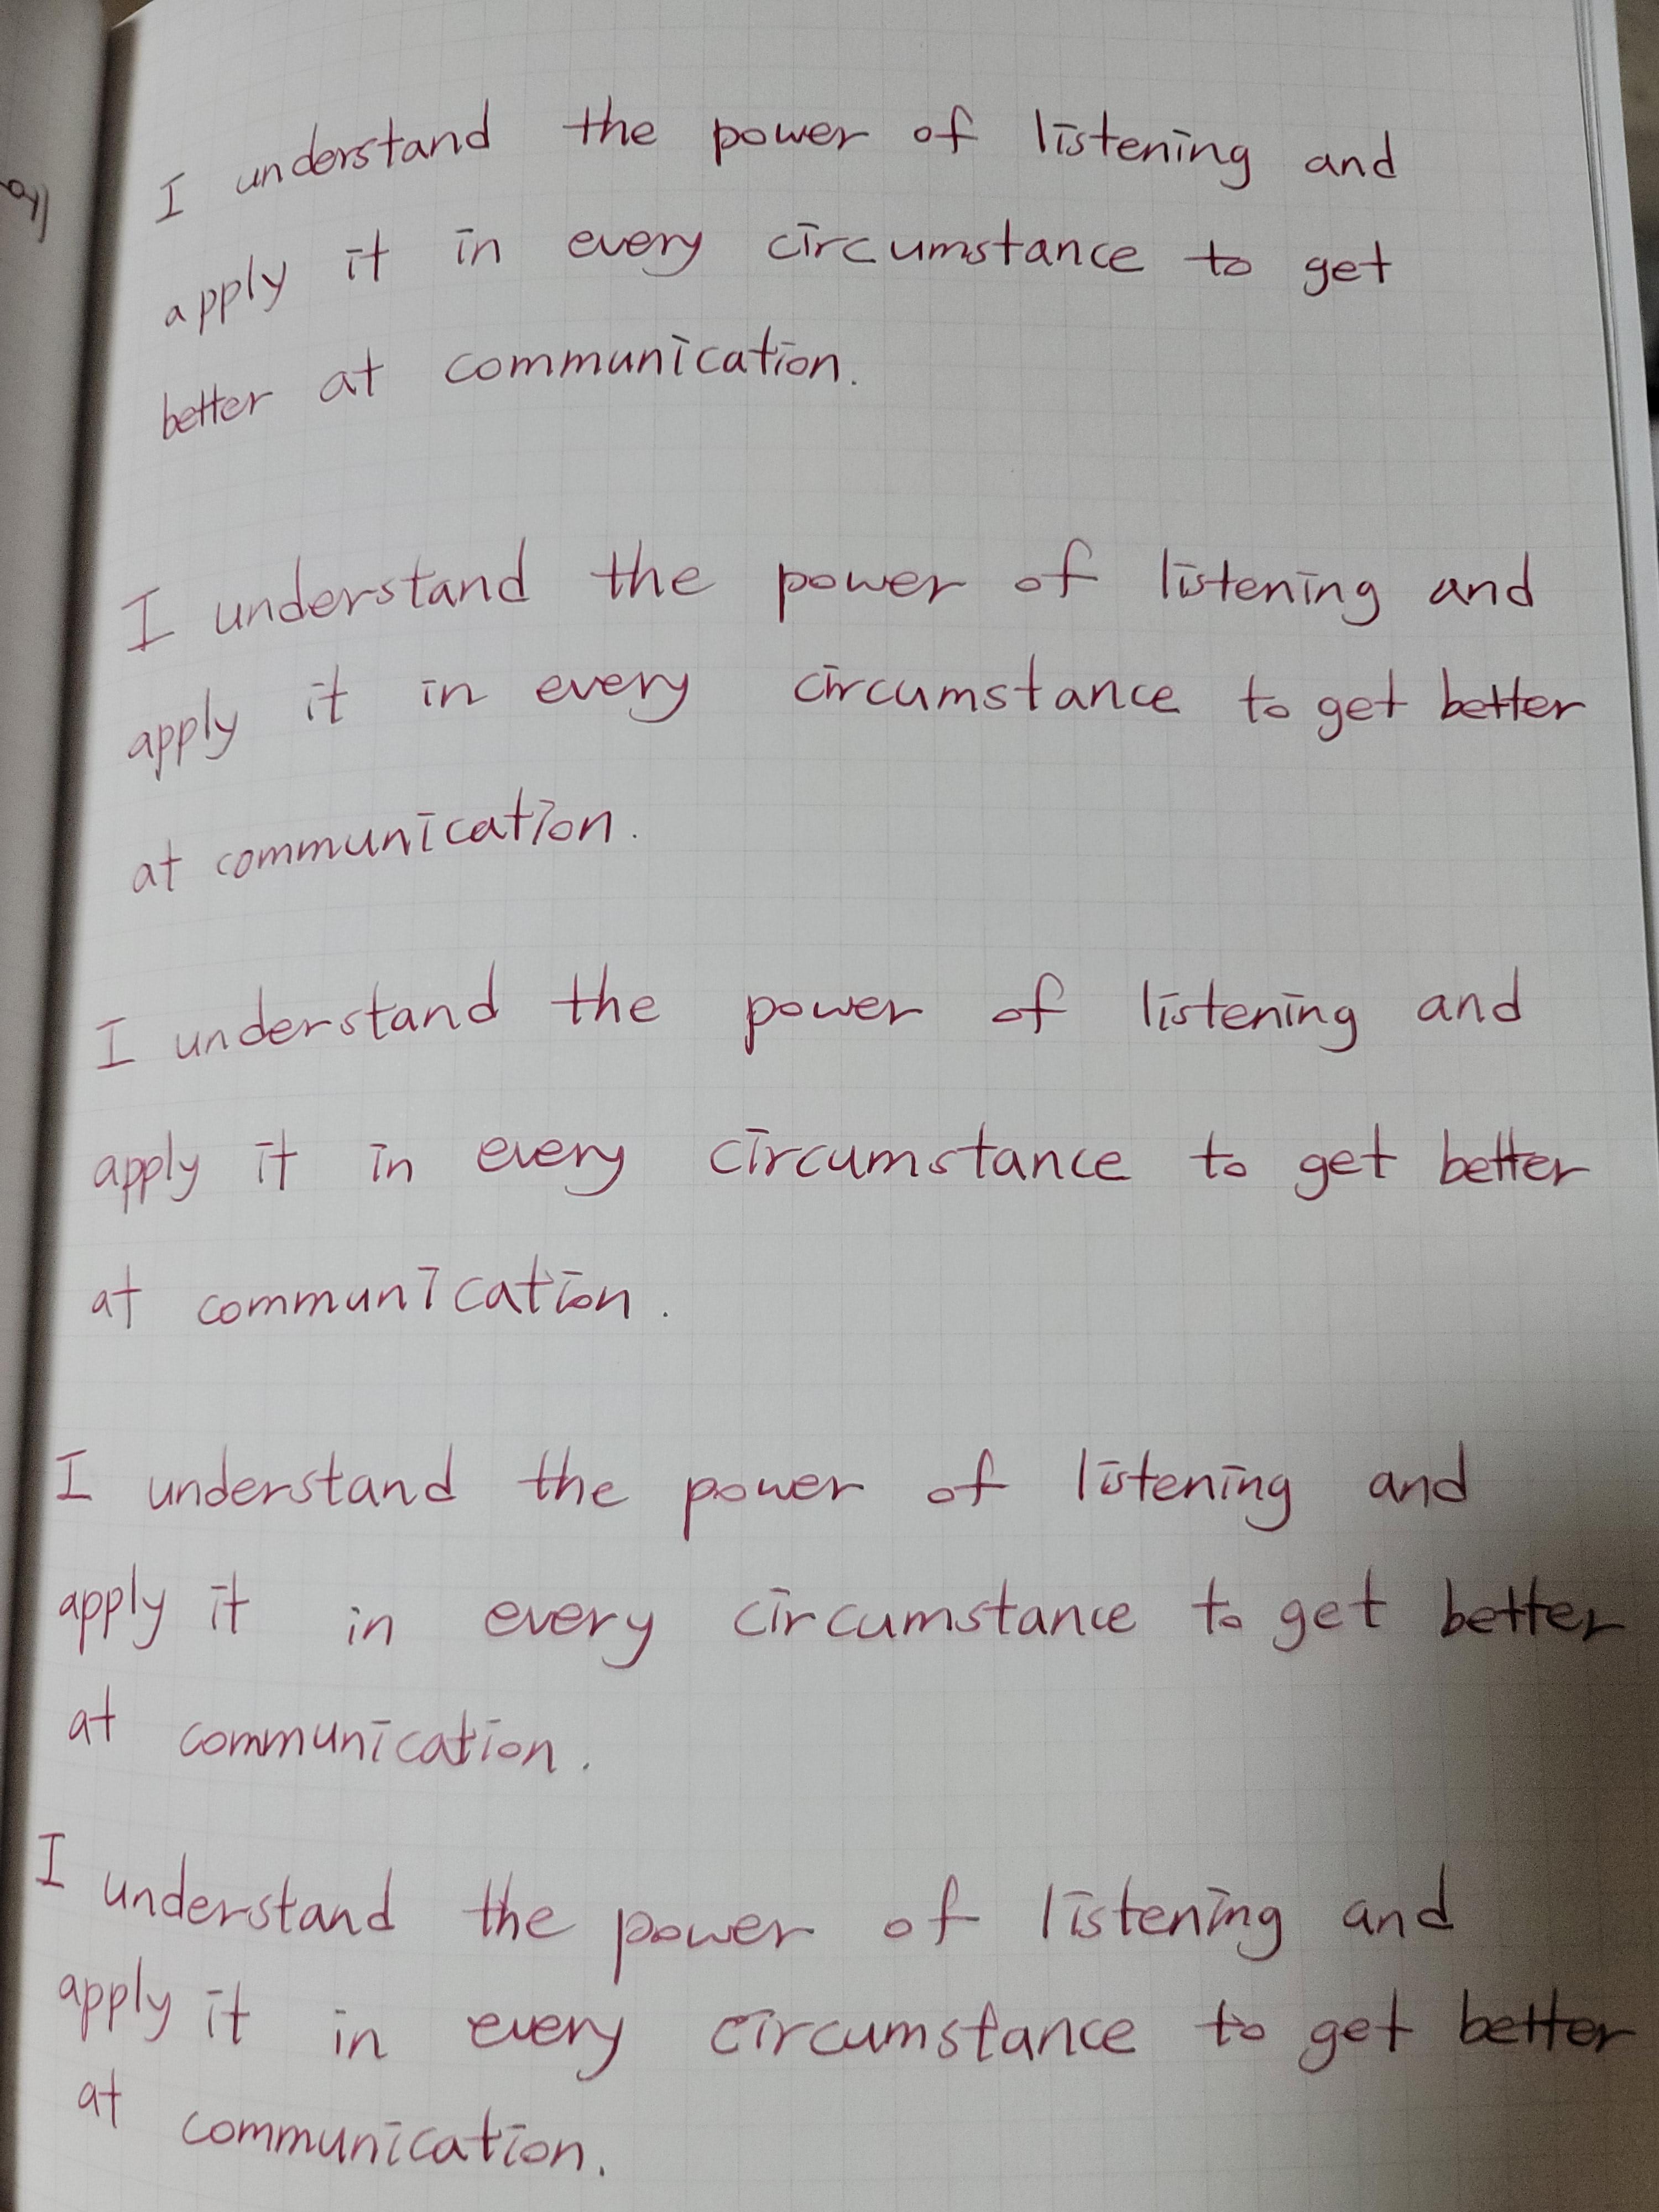 I understand the power of listening and
apply it in every circumstance to get
better at communication.
I understand the power of listening and
apply it in every circumstance to get better
at communication.
I understand the power of listening and
apply it in every circumstance to get better
at communication.
I understand the power of listening and
apply it in every circumstance to get better
at communication.
I understand the power of listening and
apply it in every circumstance to get better
at communication.